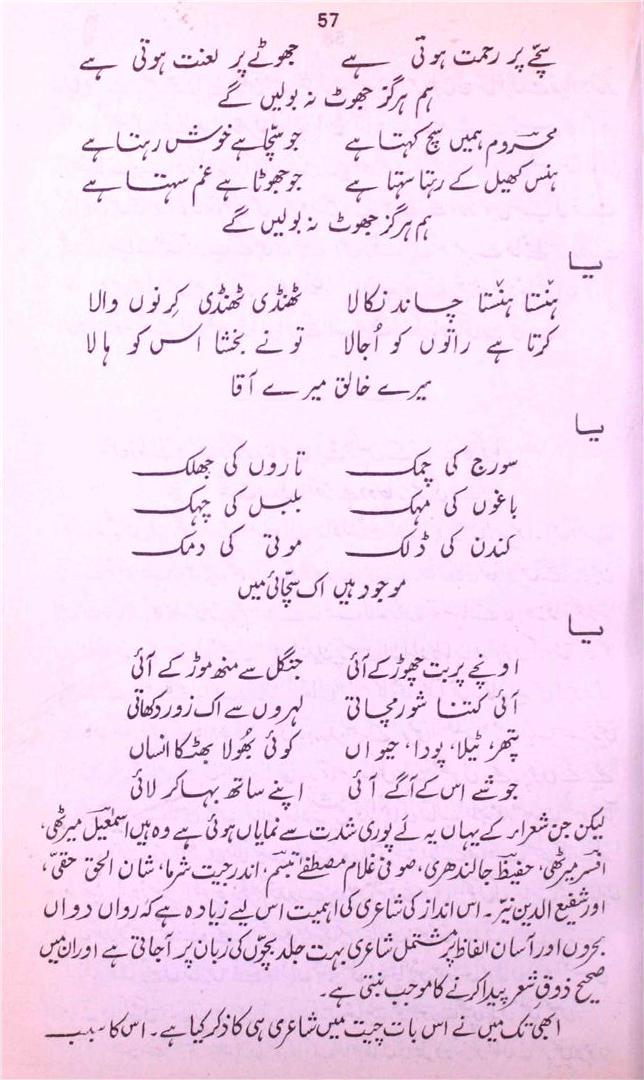 57
سچّے پر رحمت ہوتی ہے جھوٹے پر لعنت ہوتی ہے
ہم ہرگز جھوٹ نہ بولیں گے
محروم ہمیں سچ کہتا ہے جو سچّا ہے خوش رہتا ہے
ہنس کھیل کے رہتا سہتا ہے جو جھوٹا ہے غم سہتا ہے
ہم ہرگز جھوٹ نہ بولیں گے
یا
ہنستا ہنستا چاند نکالا ٹھنڈی ٹھنڈی کِرنوں والا
کرتا ہے راتوں کو اجالا تو نے بخشا اس کو ہالا
میرے خالق میرے آقا
یا
سورج کی چمک تاروں کی جھلک
باغوں کی مہک بلبل کی چہک
کندن کی ڈلک موتی کی دمک
موجود ہیں اک سچّائی میں
یا
اونچے پربت چھوڑ کے آئی جنگل سے منھ موڑ کے آئی
آئی کتنا شور مچاتی لہروں سے اک زور دکھاتی
پتھر، ٹیلا، پودا، حیواں کوئی بھُولا بھٹکا انساں
جو شے اس کے آگے آئی اپنے ساتھ بہا کر لائی
لیکن جن شعراء کے یہاں یہ نے پوری شدت سے نمایاں ہوئی ہے وہ ہیں اسمٰعیل میرٹھی،
افسر میرٹھی، حفیظ جالندھری، صوفی غلام مصطفےٰ تبسم، اندرجیت شرما، شان الحق حقی،
اور شفیع الدین نیّر۔ اس انداز کی شاعری کی اہمیت اس لیے زیادہ ہے کہ رواں دواں
بحروں اور آسان الفاظ پر مشتمل شاعری بہت جلد بچّوں کی زبان پر آجاتی ہے اور ان میں
صحیح ذوقِ شعر پیدا کرنے کا موجب بنتی ہے۔
ابھی تک میں نے اس بات چیت میں شاعری ہی کا ذکر کیا ہے۔ اس کا سبب